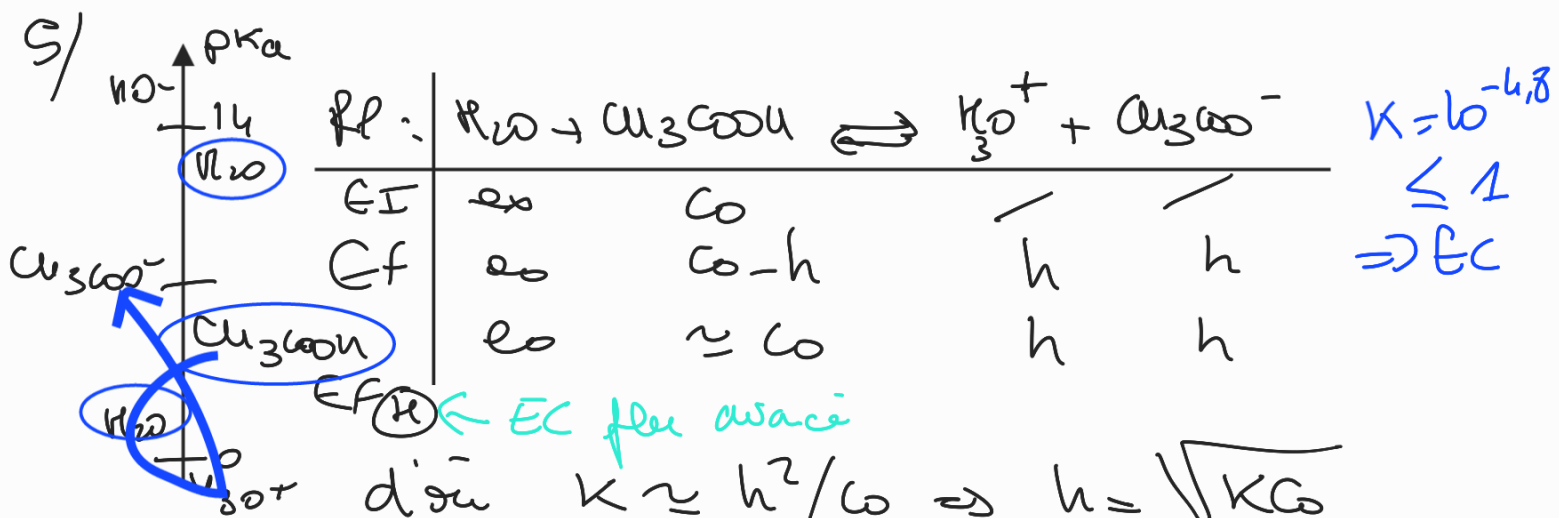 5/
pKa
HO-
14
H2O
CH3COO-
CH3COOH
H2O
0
H3O+
RP : H2O + CH3COOH ⇌ H3O+ + CH3COO-
EI ex C0 / /
Ef ex C0-h h h
Ef (H) ex ≃ C0 h h
← EC peu avancé
d'où K ≃ h²/C0 => h = √KC0
K = 10^-4,8
≤ 1
=> EC